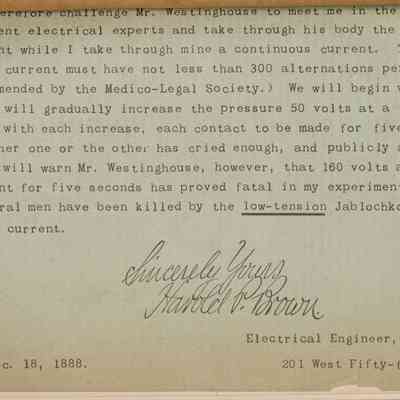 therefore challenge Mr. Westinghouse to meet me in the
ent electrical experts and take through his body the
nt while I take through mine a continuous current. T
current must have not less than 300 alternations pe
mended by the Medico-Legal Society.) We will begin w
will gradually increase the pressure 50 volts at a
with each increase, each contact to be made for five
her one or the other has cried enough, and publicly a
will warn Mr. Westinghouse, however, that 160 volts a
nt for five seconds has proved fatal in my experiment
ral men have been killed by the low-tension Jablochko
current.
Sincerely Yours
Harold P. Brown.
Electrical Engineer,
c. 18, 1888.
201 West Fifty-